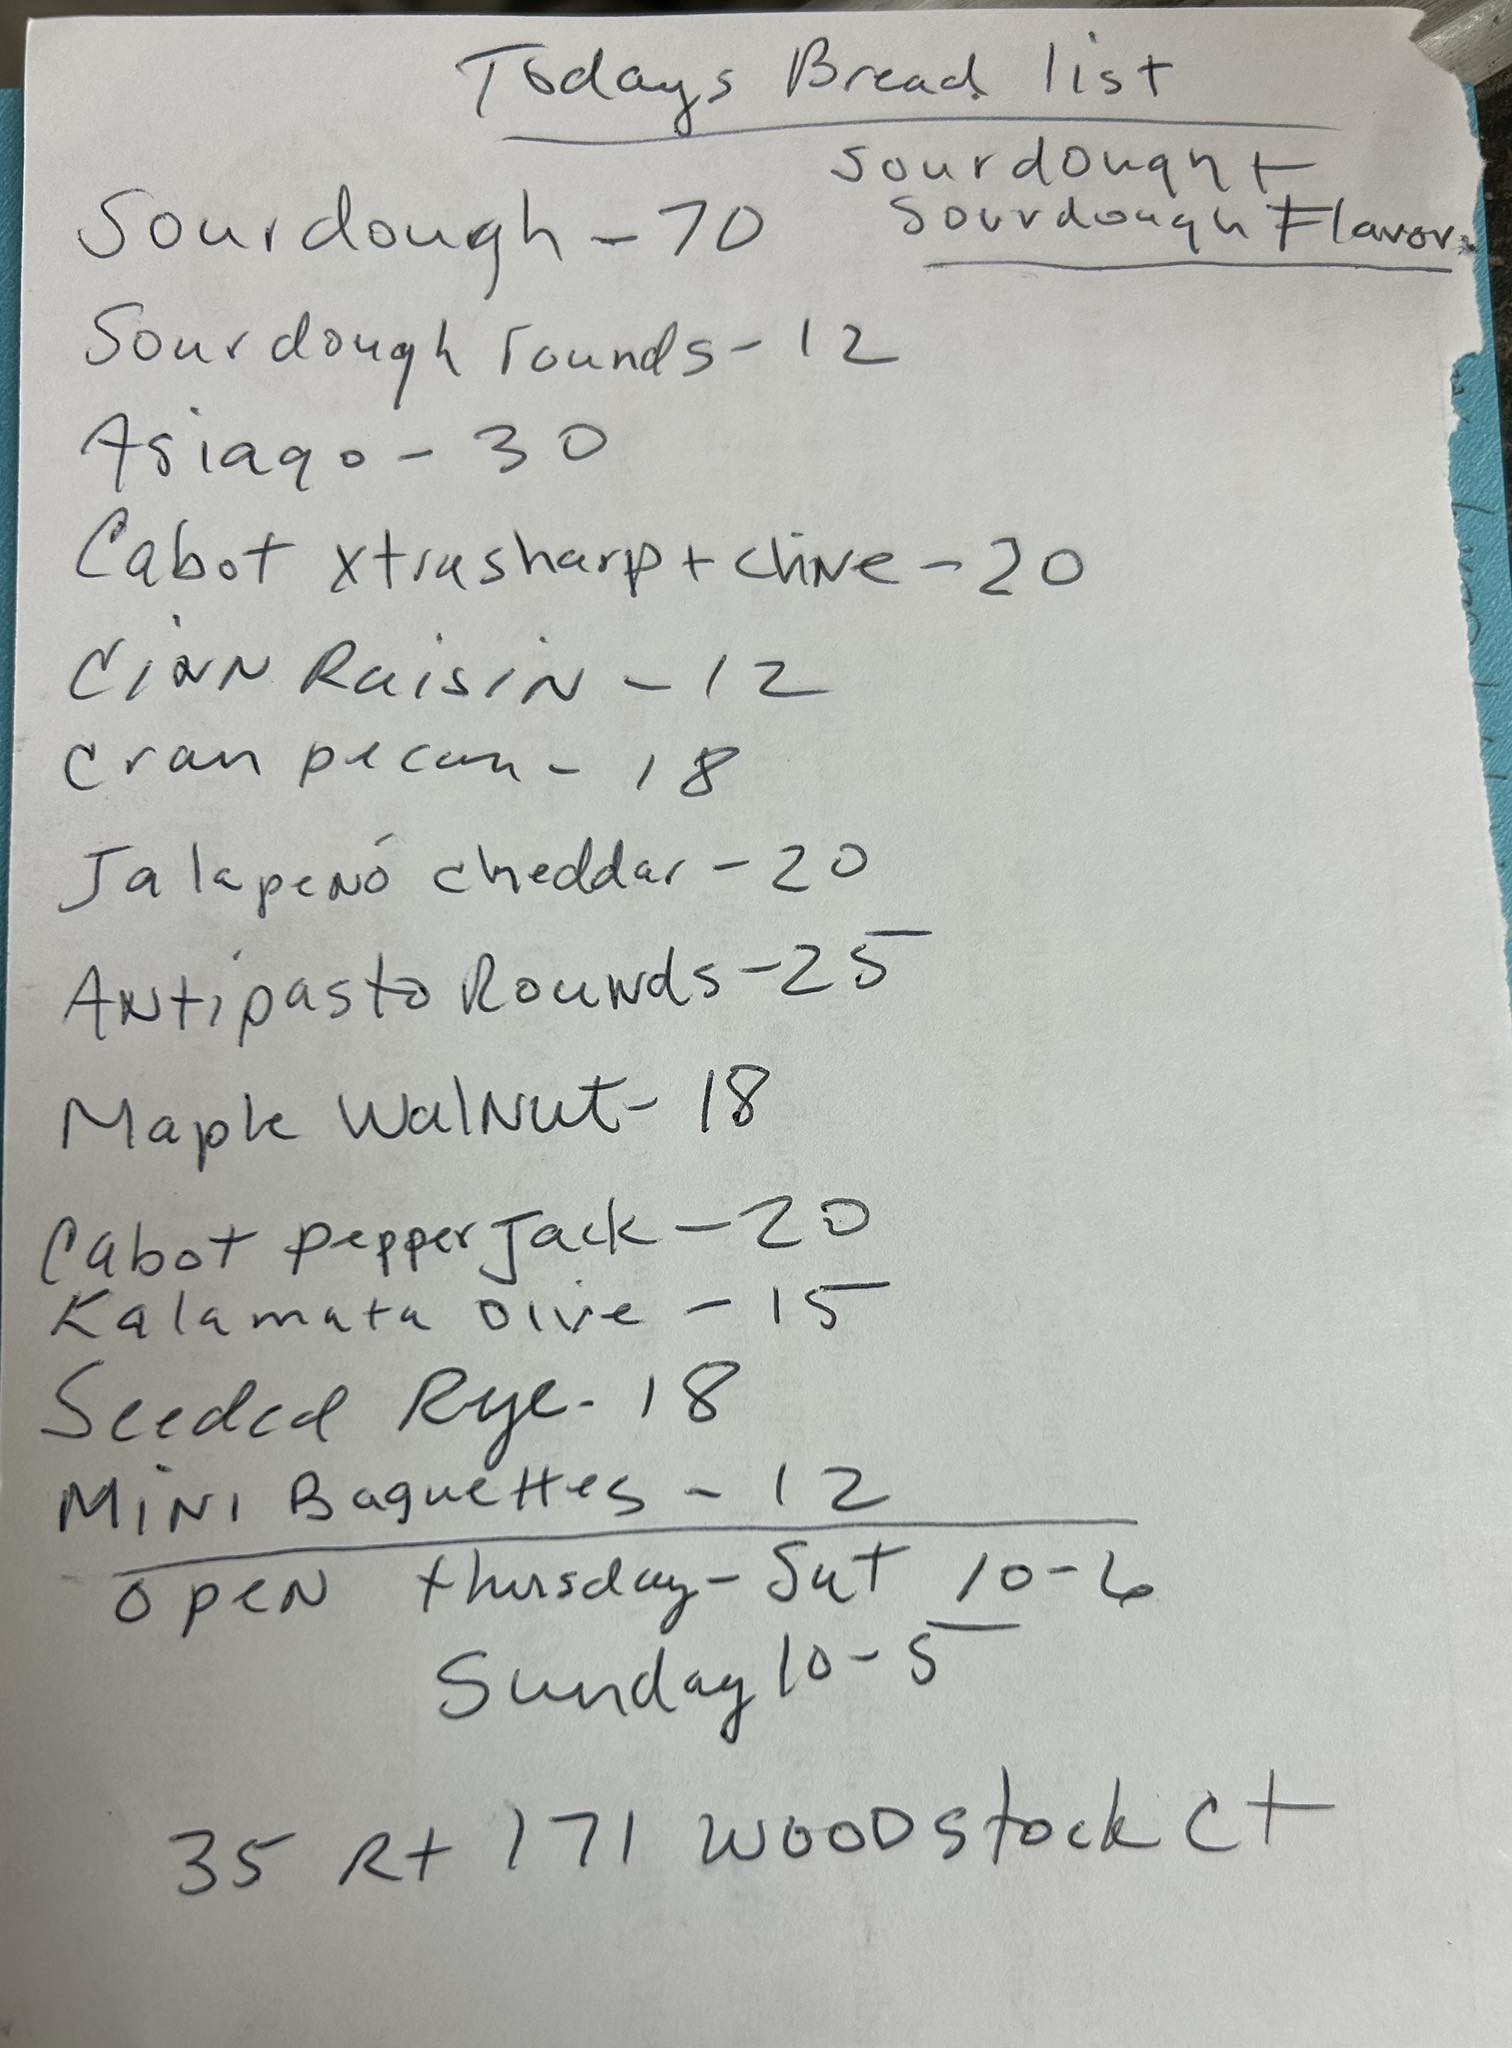 Todays Bread list
Sourdough +
Sourdough Flavor.
Sourdough - 70
Sourdough rounds - 12
Asiago - 30
Cabot xtrasharp + chive - 20
Cinn Raisin - 12
Cran pecan - 18
Jalapenó cheddar - 20
Antipasto Rounds - 25
Maple Walnut - 18
Cabot pepper Jack - 20
Kalamata olive - 15
Seeded Rye - 18
Mini Baguettes - 12
Open thursday - Sat 10-6
Sunday 10-5
35 Rt 171 Woodstock Ct